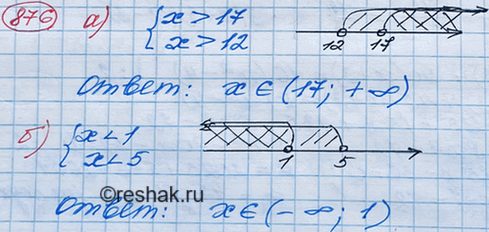 876 а) { x > 17
x > 12
12 17
Ответ: x ∈ (17; +∞)
б) { x < 1
x < 5
1 5
©reshak.ru
Ответ: x ∈ (-∞; 1)